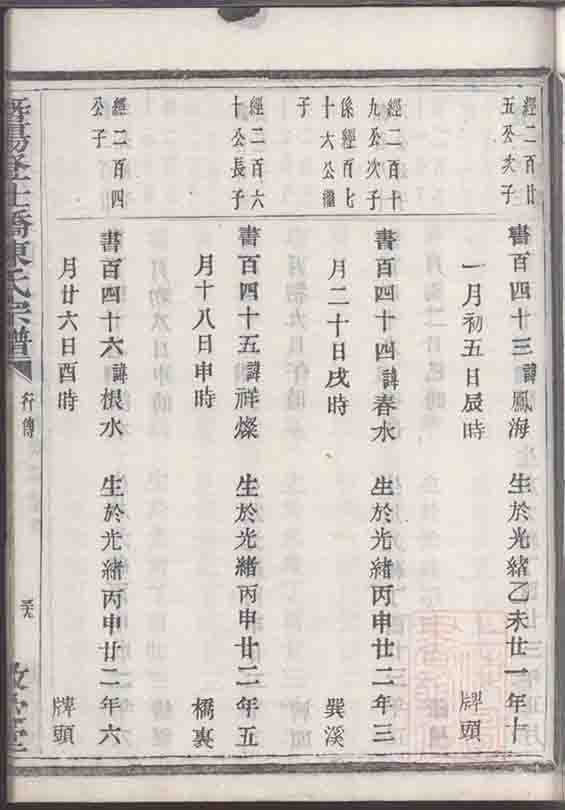 經二百廿
五公次子
書百四十三諱鳳海 生於光緒乙未廿一年十
一月初五日辰時 牌頭
經二百十
九公次子
係經百七
十六公繼
子
書百四十四諱春水 生於光緒丙申廿二年三
月二十日戌時 巽溪
經二百六
十公長子
書百四十五諱祥燦 生於光緒丙申廿二年五
月十八日申時 橋裏
經二百四
公子
書百四十六諱根水 生於光緒丙申廿二年六
月廿六日酉時 牌頭
暨陽 仕橋陳氏宗譜 行傳